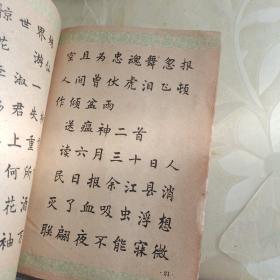 惊世界
花 游仙
淑一
君失
上重
何所
花酒
神
空且为忠魂舞忽报
人间曾伏虎泪飞顿
作倾盆雨
送瘟神二首
读六月三十日人
民日报余江县消
灭了血吸虫浮想
联翩夜不能寐微